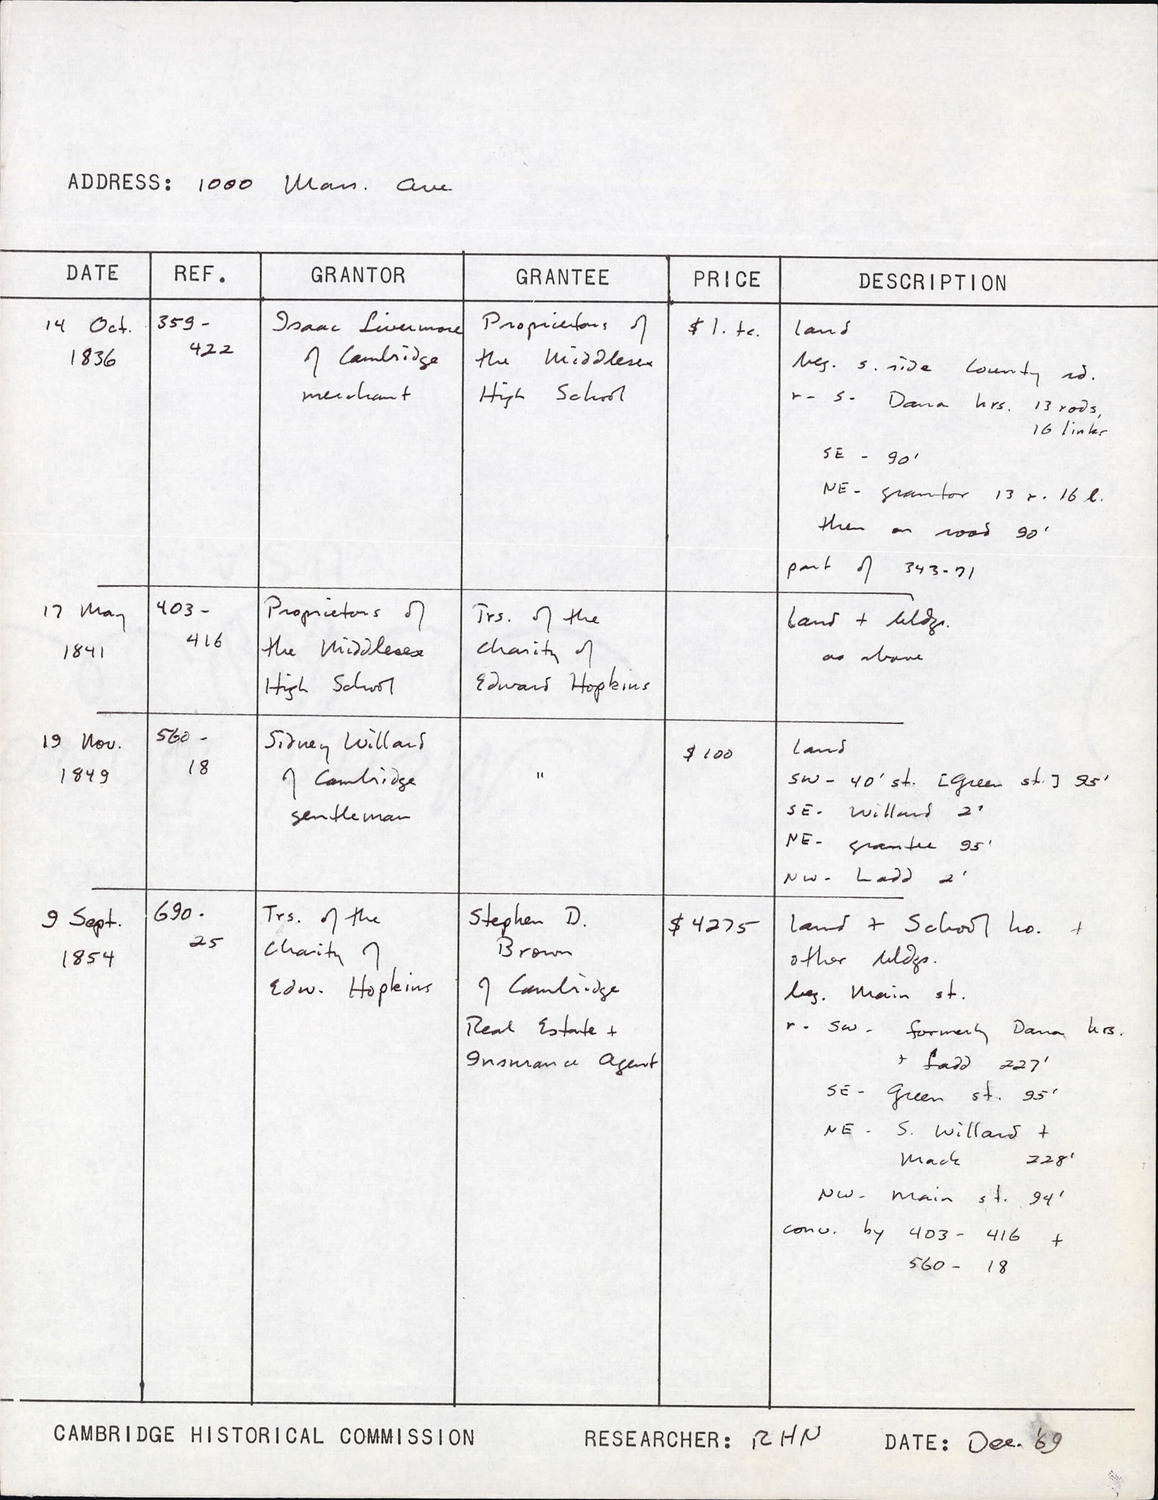 ADDRESS: 1000 Mass. Ave
DATE REF. GRANTOR GRANTEE PRICE DESCRIPTION
14 Oct. 1836
359-422
Isaac Livermore
of Cambridge
merchant
Proprietors of
the Middlesex
High School
$1. tc.
land
beg. s. side County rd.
r- s- Dana hrs. 13 rods,
16 links
SE - 90'
NE- grantor 13 r. 16 l.
then on road 90'
part of 343-71
17 May
1841
403-
416
Proprietors of
the Middlesex
High School
Trs. of the
charity of
Edward Hopkins
land + bldgs.
as above
19 Nov.
1849
560-
18
Sidney Willard
of Cambridge
gentleman
"
$100
land
SW- 40' st. [Green st.] 95'
SE- Willard 2'
NE- grantee 95'
NW- Ladd 2'
9 Sept.
1854
690-
25
Trs. of the
Charity of
Edw. Hopkins
Stephen D.
Brown
of Cambridge
Real Estate +
Insurance Agent
$4275
land + School ho. +
other bldgs.
beg. Main st.
r- SW- formerly Dana hrs.
+ Ladd 227'
SE- Green st. 95'
NE- S. Willard +
Mack 228'
NW- Main st. 94'
conv. by 403-416 +
560-18
CAMBRIDGE HISTORICAL COMMISSION RESEARCHER: RHN DATE: Dec. '69